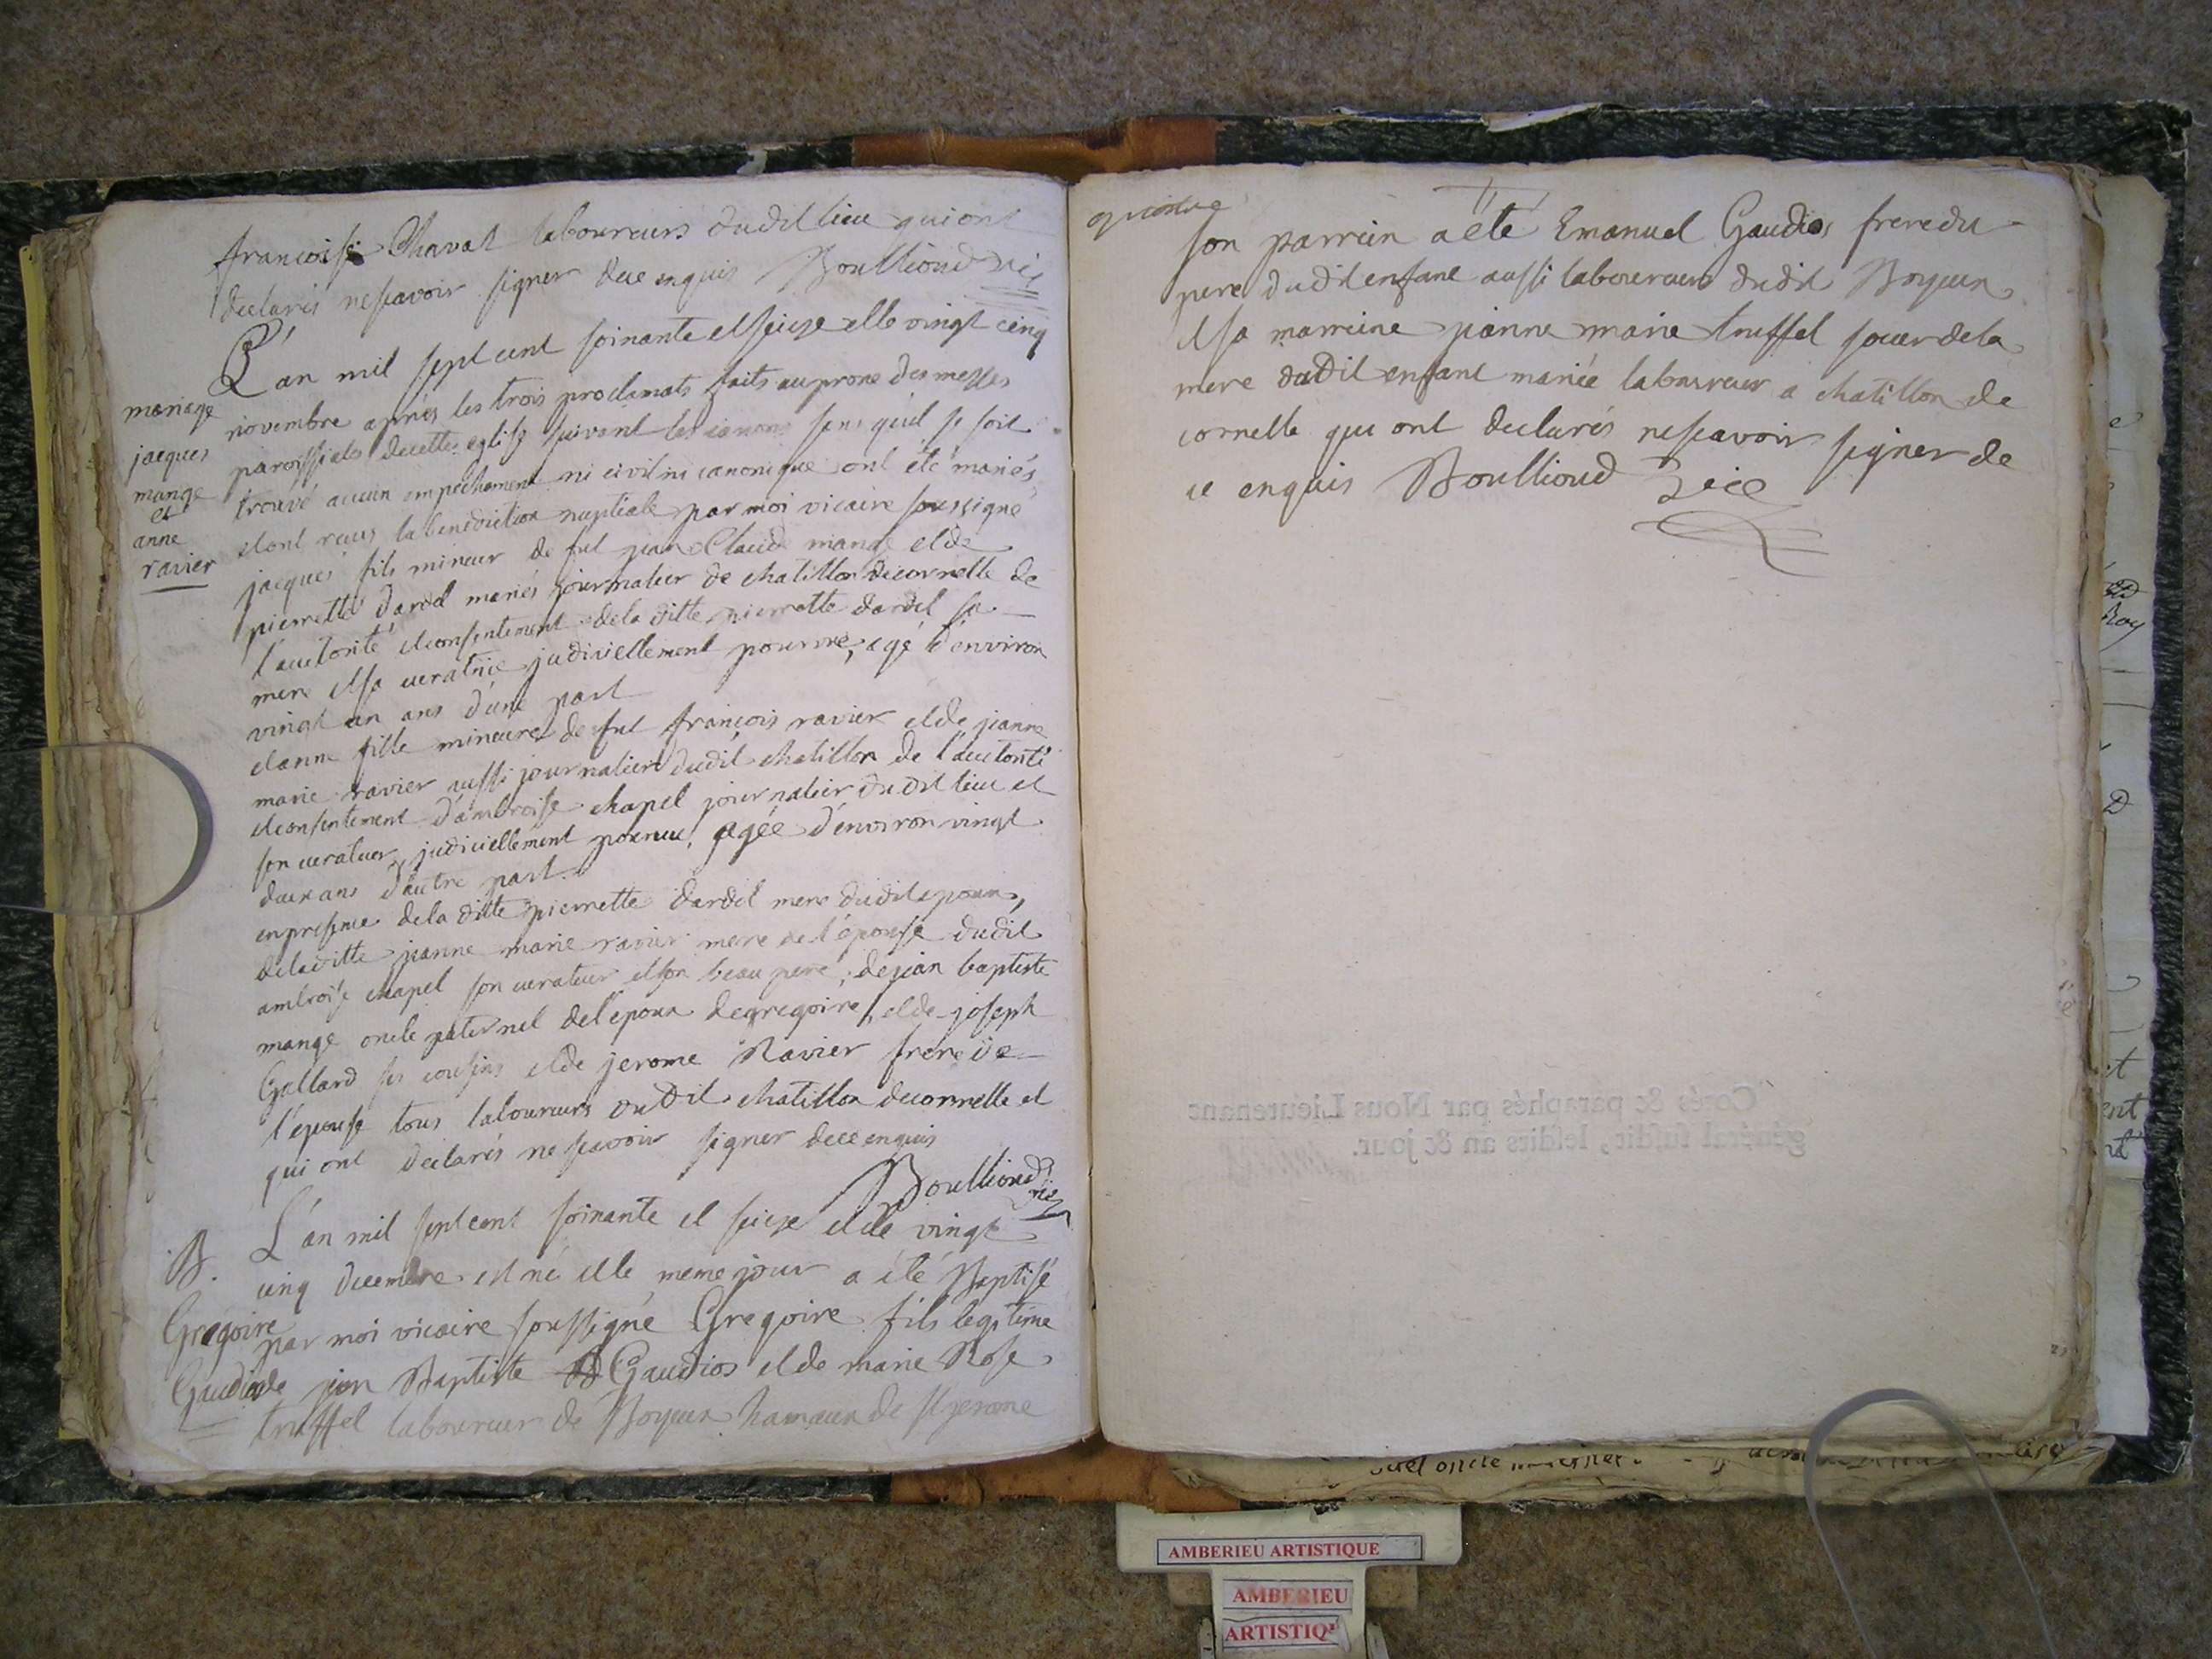 françoise Chavat laboureurs dudit lieu qui ont
declarés ne scavoir signer de ce enquis Boullioud vic
L'an mil sept cent soixante et seize et le vingt cinq
mariage
jacques
mange
et
anne
ravier
novembre après les trois proclamats faits au prone des messes
paroissiales de cette eglise suivant les canons sans qu'il se soit
trouvé aucun empechement ni civil ni canonique ont été mariés
et ont reçus la benediction nuptiale par moi vicaire soussigné
jacques fils mineur de fut jean Claude mange et de
pierrette dardel mariés journalier de chatillon de cornelle de
l'auctorité et consentement de la ditte pierrette dardel sa
mere et sa curatrice judiciellement pourvue, agé d'environ
vingt un ans d'une part
et anne fille mineure de fut françois ravier et de jeanne
marie ravier aussi journalier dudit chatillon de l'auctorité
et consentement d'ambroise chapel journalier dudit lieu et
son curateur judiciellement pourvue, agée d'environ vingt
deux ans d'autre part.
en presence de la ditte pierrette dardel mere dudit epoux,
de laditte jeanne marie ravier mere de l'épouse dudit
ambroise chapel son curateur et son beau pere, de jean baptiste
mange oncle paternel de l'epoux de gregoire, et de joseph
Gallard ses cousins et de jerome Ravier frere de
l'épouse tous laboureurs dudit chatillon de cornelle et
qui ont declarés ne scavoir signer de ce enquis
Boullioud vic
B.
Gregoire
Gaudios
L'an mil sept cent soixante et seize et le vingt
cinq decembre est né et le meme jour a été Baptisé
par moi vicaire soussigné Gregoire fils legitime
de jean Baptiste Gaudios et de marie Rose
truffel laboureur de Boyeux hamaux de st jerome
son parrein a eté Emanuel Gaudios frere du
pere dudit enfant aussi laboureur dudit Boyeux
et sa marreine jeanne marie truffel soeur de la
mere dudit enfant mariée laboureur a chatillon de
cornelle qui ont declarés ne scavoir signer de
ce enquis Boullioud vice
Cotés & paraphés par Nous Lieutenant
général susdit, lesdits an & jour.
AMBERIEU ARTISTIQUE
AMBERIEU
ARTISTIQ